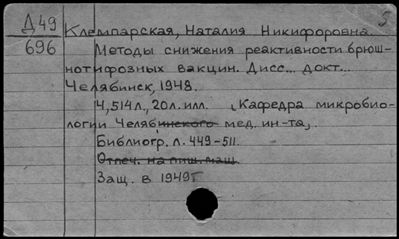 5
Д49 Клемпарская, Наталия Никифоровна.
696 Методы снижения реактивности брюш-
нотифозных вакцин. Дисс... докт...
Челябинск, 1948.
4,514л., 20л. илл. (Кафедра микробио-
логии Челябинского мед. ин-та).
Библиогр. л. 449-511.
Отпеч. на пиш. маш.
Защ. в 1949г